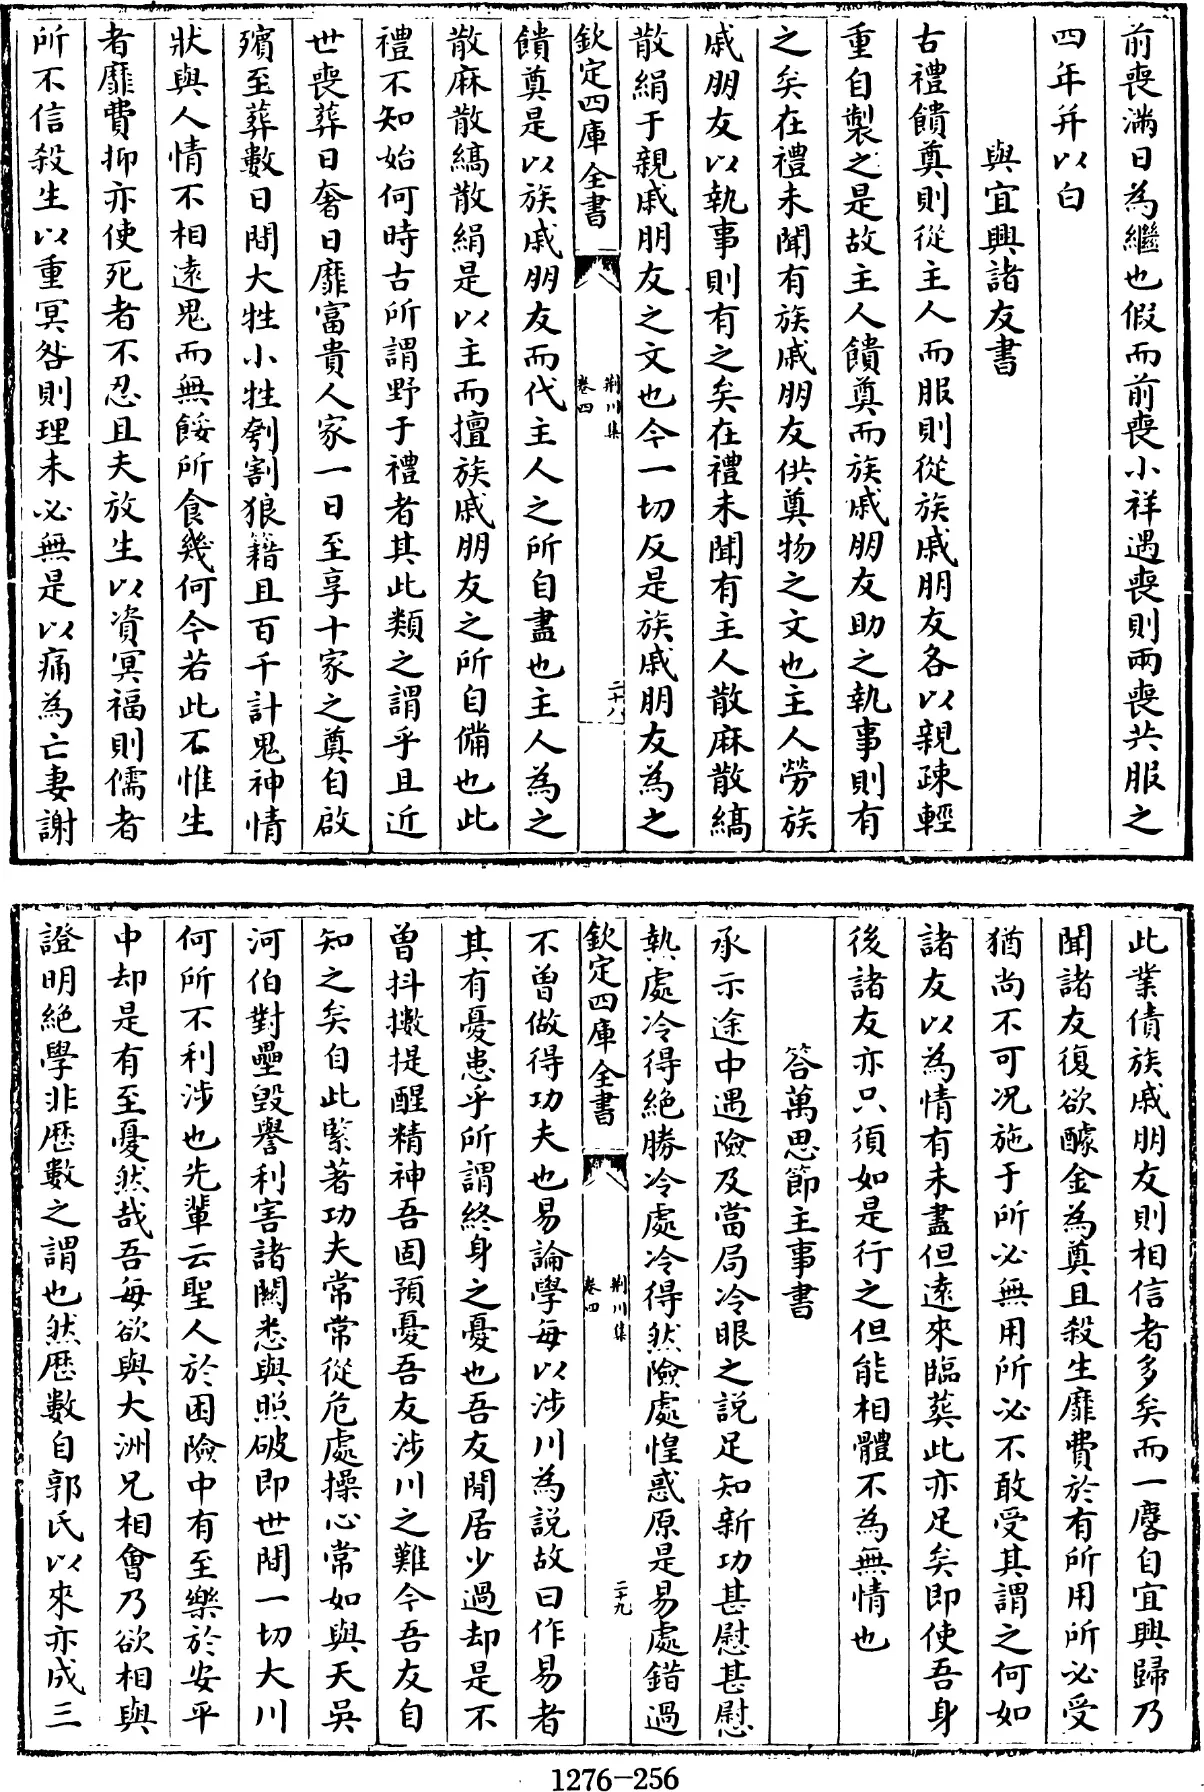 前喪滿日為繼也假而前喪小祥遇喪則兩喪共服之
四年幷以白
與宜興諸友書
古禮饋奠則從主人而服則從族戚朋友各以親疎輕
重自製之是故主人饋奠而族戚朋友助之執事則有
之矣在禮未聞有族戚朋友供奠物之文也主人勞族
戚朋友以執事則有之矣在禮未聞有主人散麻散縞
散絹于親戚朋友之文也今一切反是族戚朋友為之
欽定四庫全書
荆川集
卷四
二十八
饋奠是以族戚朋友而代主人之所自盡也主人為之
散麻散縞散絹是以主而擅族戚朋友之所自備也此
禮不知始何時古所謂野于禮者其此類之謂乎且近
世喪葬日奢日靡富貴人家一日至享十家之奠自啟
殯至葬數日間大牲小牲刳割狼籍且百千計鬼神情
狀與人情不相遠鬼而無餒所食幾何今若此不惟生
者靡費抑亦使死者不忍且夫放生以資冥福則儒者
所不信殺生以重冥咎則理未必無是以痛為亡妻謝
此業債族戚朋友則相信者多矣而一麐自宜興歸乃
聞諸友復欲醵金為奠且殺生靡費於有所用所必受
猶尚不可况施于所必無用所必不敢受其謂之何如
諸友以為情有未盡但遠來臨葬此亦足矣即使吾身
後諸友亦只須如是行之但能相體不為無情也
答萬思節主事書
承示途中遇險及當局冷眼之説足知新功甚慰甚慰
熱處冷得絶勝冷處冷得然險處惶惑原是易處錯過
欽定四庫全書
荆川集
卷四
二十九
不曽做得功夫也易論學每以涉川為説故曰作易者
其有憂患乎所謂終身之憂也吾友閒居少過却是不
曽抖擻提醒精神吾固預憂吾友涉川之難今吾友自
知之矣自此緊著功夫常常從危處操心常如與天吳
河伯對壘毀譽利害諸關悉與照破即世間一切大川
何所不利涉也先輩云聖人於困險中有至樂於安平
中却是有至憂然哉吾每欲與大洲兄相會乃欲相與
證明絶學非厯數之謂也然厯數自郭氏以來亦成三
1276-256